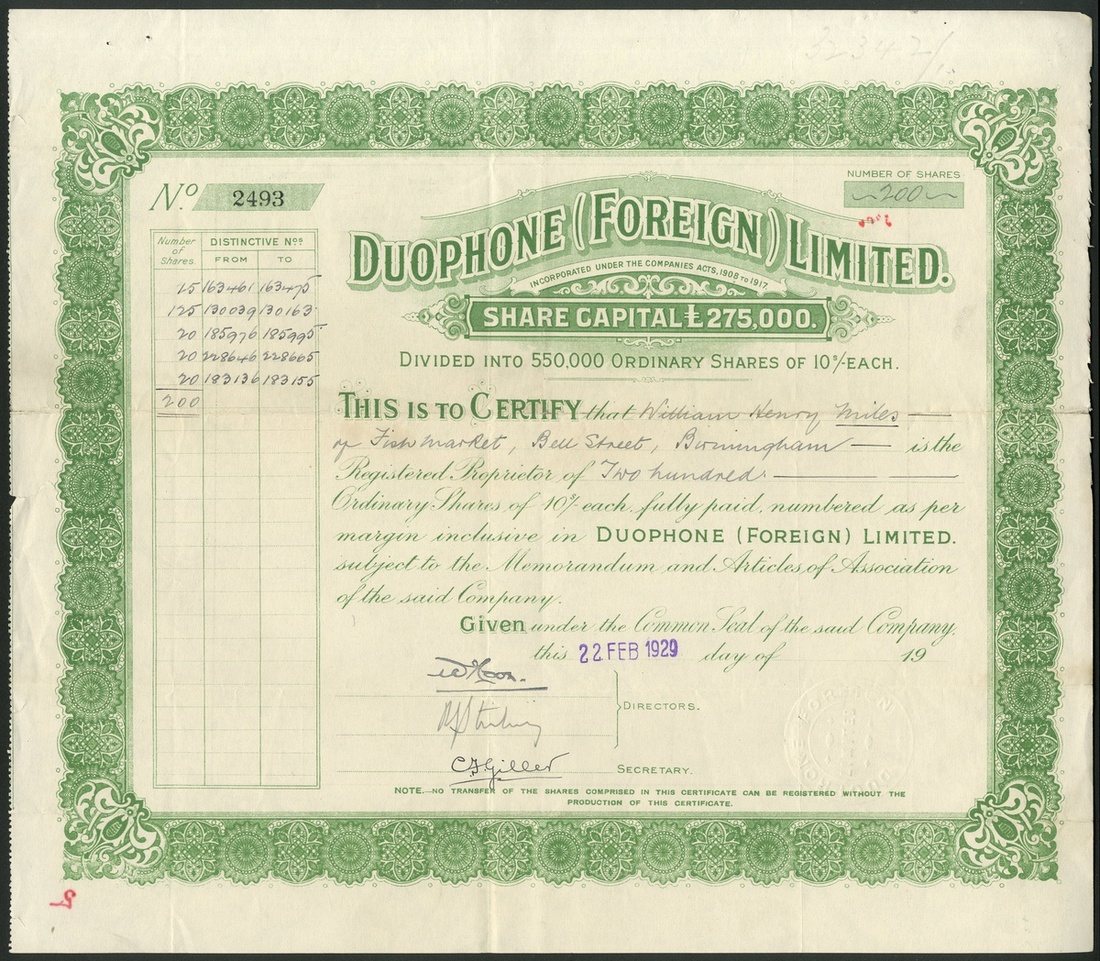 32342/
No. 2493
NUMBER OF SHARES
200
DUOPHONE (FOREIGN) LIMITED.
INCORPORATED UNDER THE COMPANIES ACTS, 1908 TO 1917.
SHARE CAPITAL £275,000.
DIVIDED INTO 550,000 ORDINARY SHARES OF 10s/- EACH.
Number of Shares DISTINCTIVE Nos. FROM TO
15 163461 163475
125 130039 130163
20 185976 185995
20 228646 228665
20 183136 183155
200
THIS IS TO CERTIFY that William Henry Miles
of Fish Market, Bell Street, Birmingham is the
Registered Proprietor of Two hundred
Ordinary Shares of 10s/- each, fully paid, numbered as per
margin inclusive in DUOPHONE (FOREIGN) LIMITED.
subject to the Memorandum and Articles of Association
of the said Company.
Given under the Common Seal of the said Company,
this 22 FEB 1929 day of 19
DIRECTORS.
C F Giller
SECRETARY.
NOTE.—NO TRANSFER OF THE SHARES COMPRISED IN THIS CERTIFICATE CAN BE REGISTERED WITHOUT THE
PRODUCTION OF THIS CERTIFICATE.